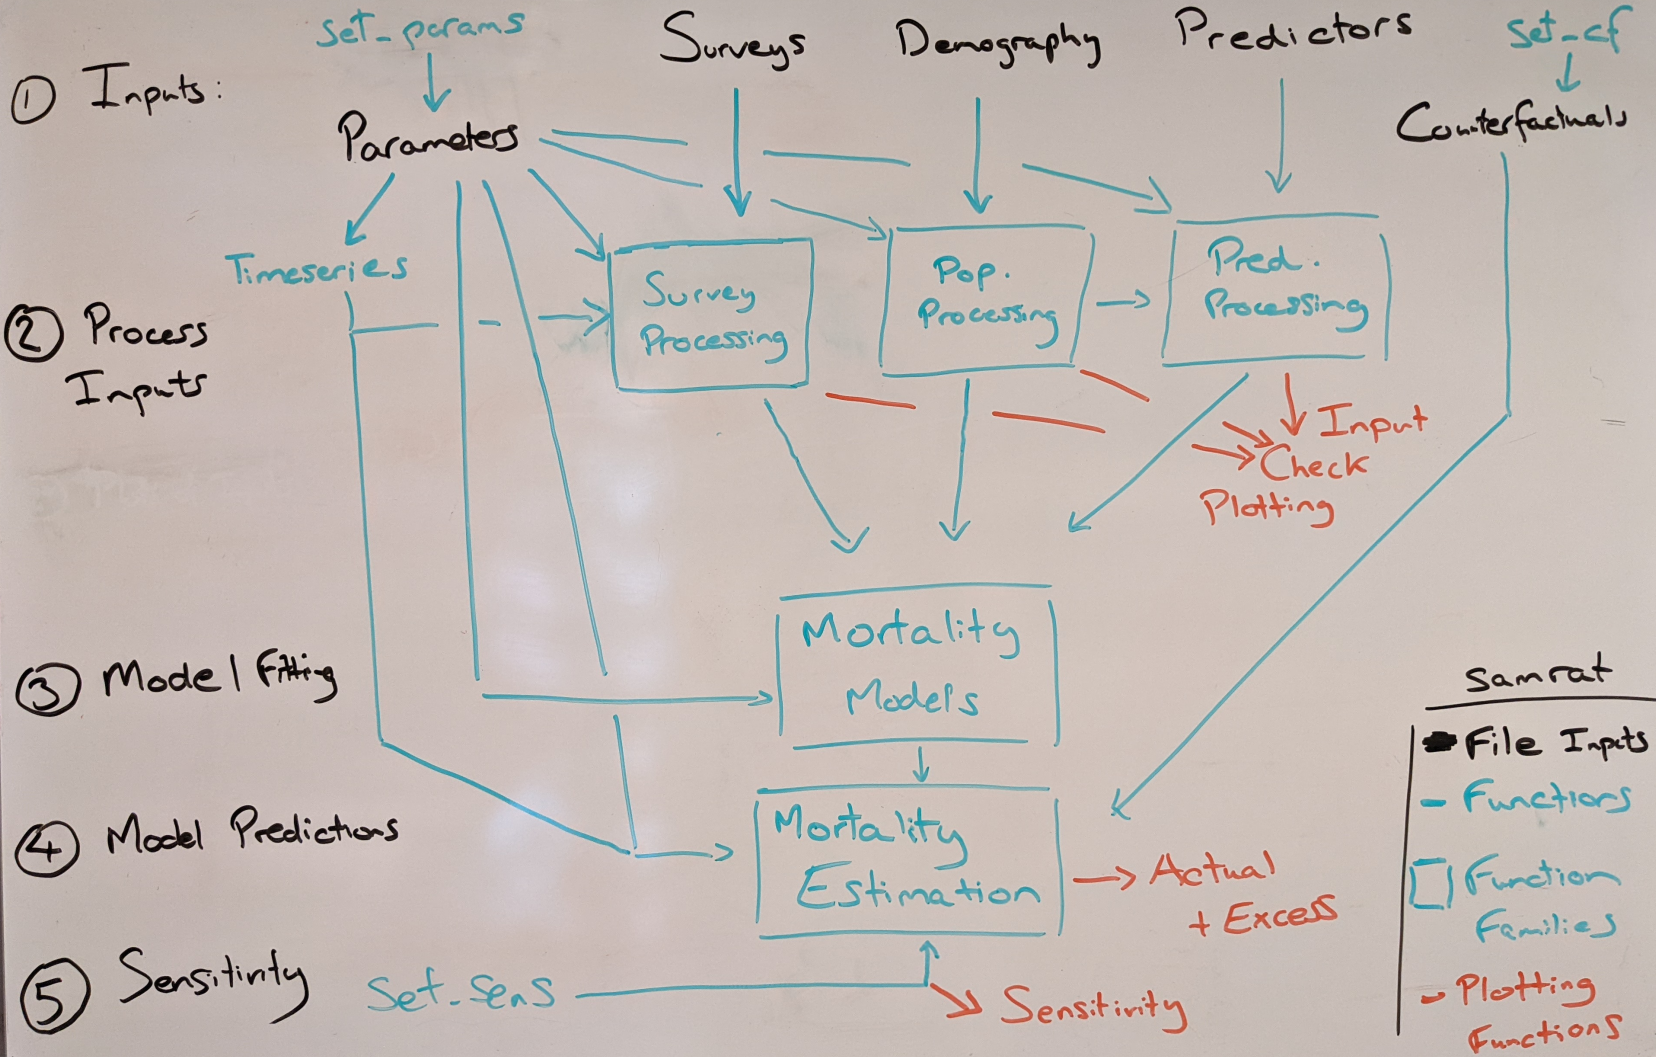 set_params
Surveys
Demography
Predictors
set_cf
① Inputs:
Parameters
Counterfactuals
Timeseries
Survey
Processing
Pop.
Processing
Pred.
Processing
② Process
Inputs
Input
Check
Plotting
③ Model Fitting
Mortality
Models
④ Model Predictions
Mortality
Estimation
Actual
+ Excess
⑤ Sensitivity
Set_Sens
Sensitivity
samrat
File Inputs
Functions
Function
Families
Plotting
Functions